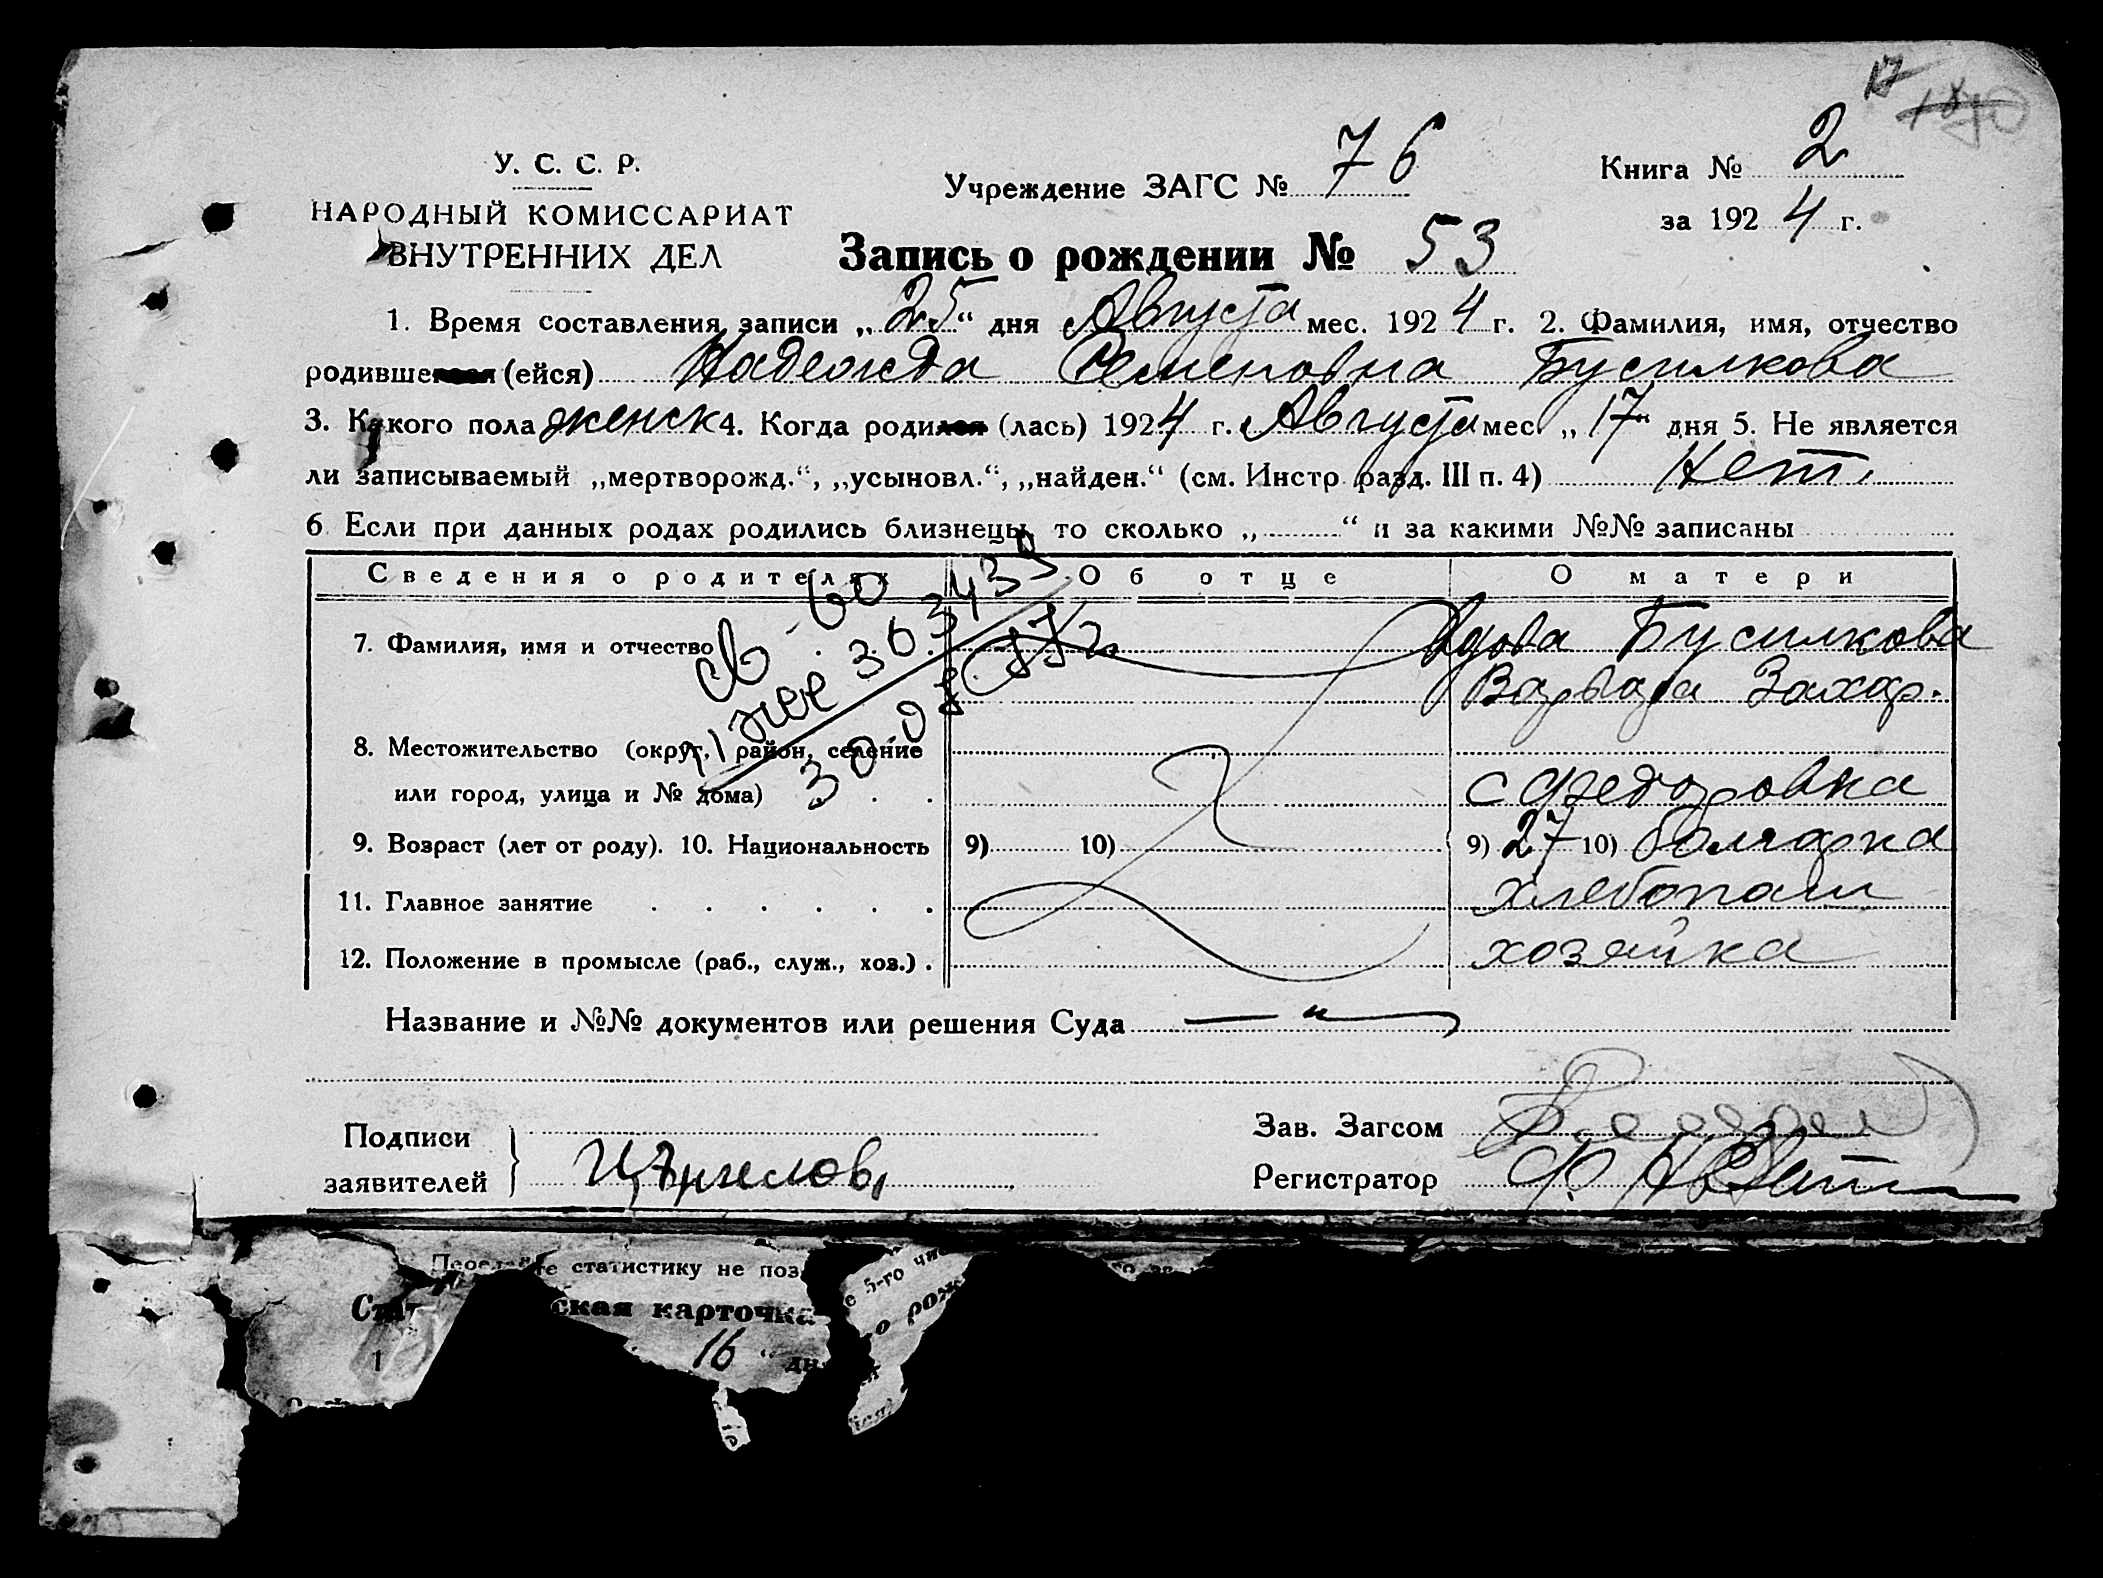 17
У. С. С. Р.
НАРОДНЫЙ КОМИССАРИАТ
ВНУТРЕННИХ ДЕЛ
Учреждение ЗАГС № 76
Книга № 2
за 1924 г.
Запись о рождении № 53
1. Время составления записи „25“ дня Августа мес. 1924 г. 2. Фамилия, имя, отчество
родившегося (ейся) Надежда Семеновна Бусилкова
3. Какого пола женск 4. Когда родился (лась) 1924 г. Августа мес. „17“ дня 5. Не является
ли записываемый „мертворожд.“, „усыновл.“, „найден.“ (см. Инстр. разд. III п. 4) Нет.
6 Если при данных родах родились близнецы, то сколько „ “ и за какими №№ записаны
Сведения о родителях Об отце О матери
7. Фамилия, имя и отчество Вдова Бусилкова
Варвара Захар.
8. Местожительство (округ, район, селение
или город, улица и № дома) с Федоровка
9. Возраст (лет от роду). 10. Национальность 9) 10) 9) 27 10) болгарка
11. Главное занятие хлебопаш
12. Положение в промысле (раб., служ., хоз.) хозяйка
Название и №№ документов или решения Суда — " —
Подписи
заявителей
Зав. Загсом
Регистратор
статистику не поз
ская карточка
16 “ дн
е 5-го чис
о рож